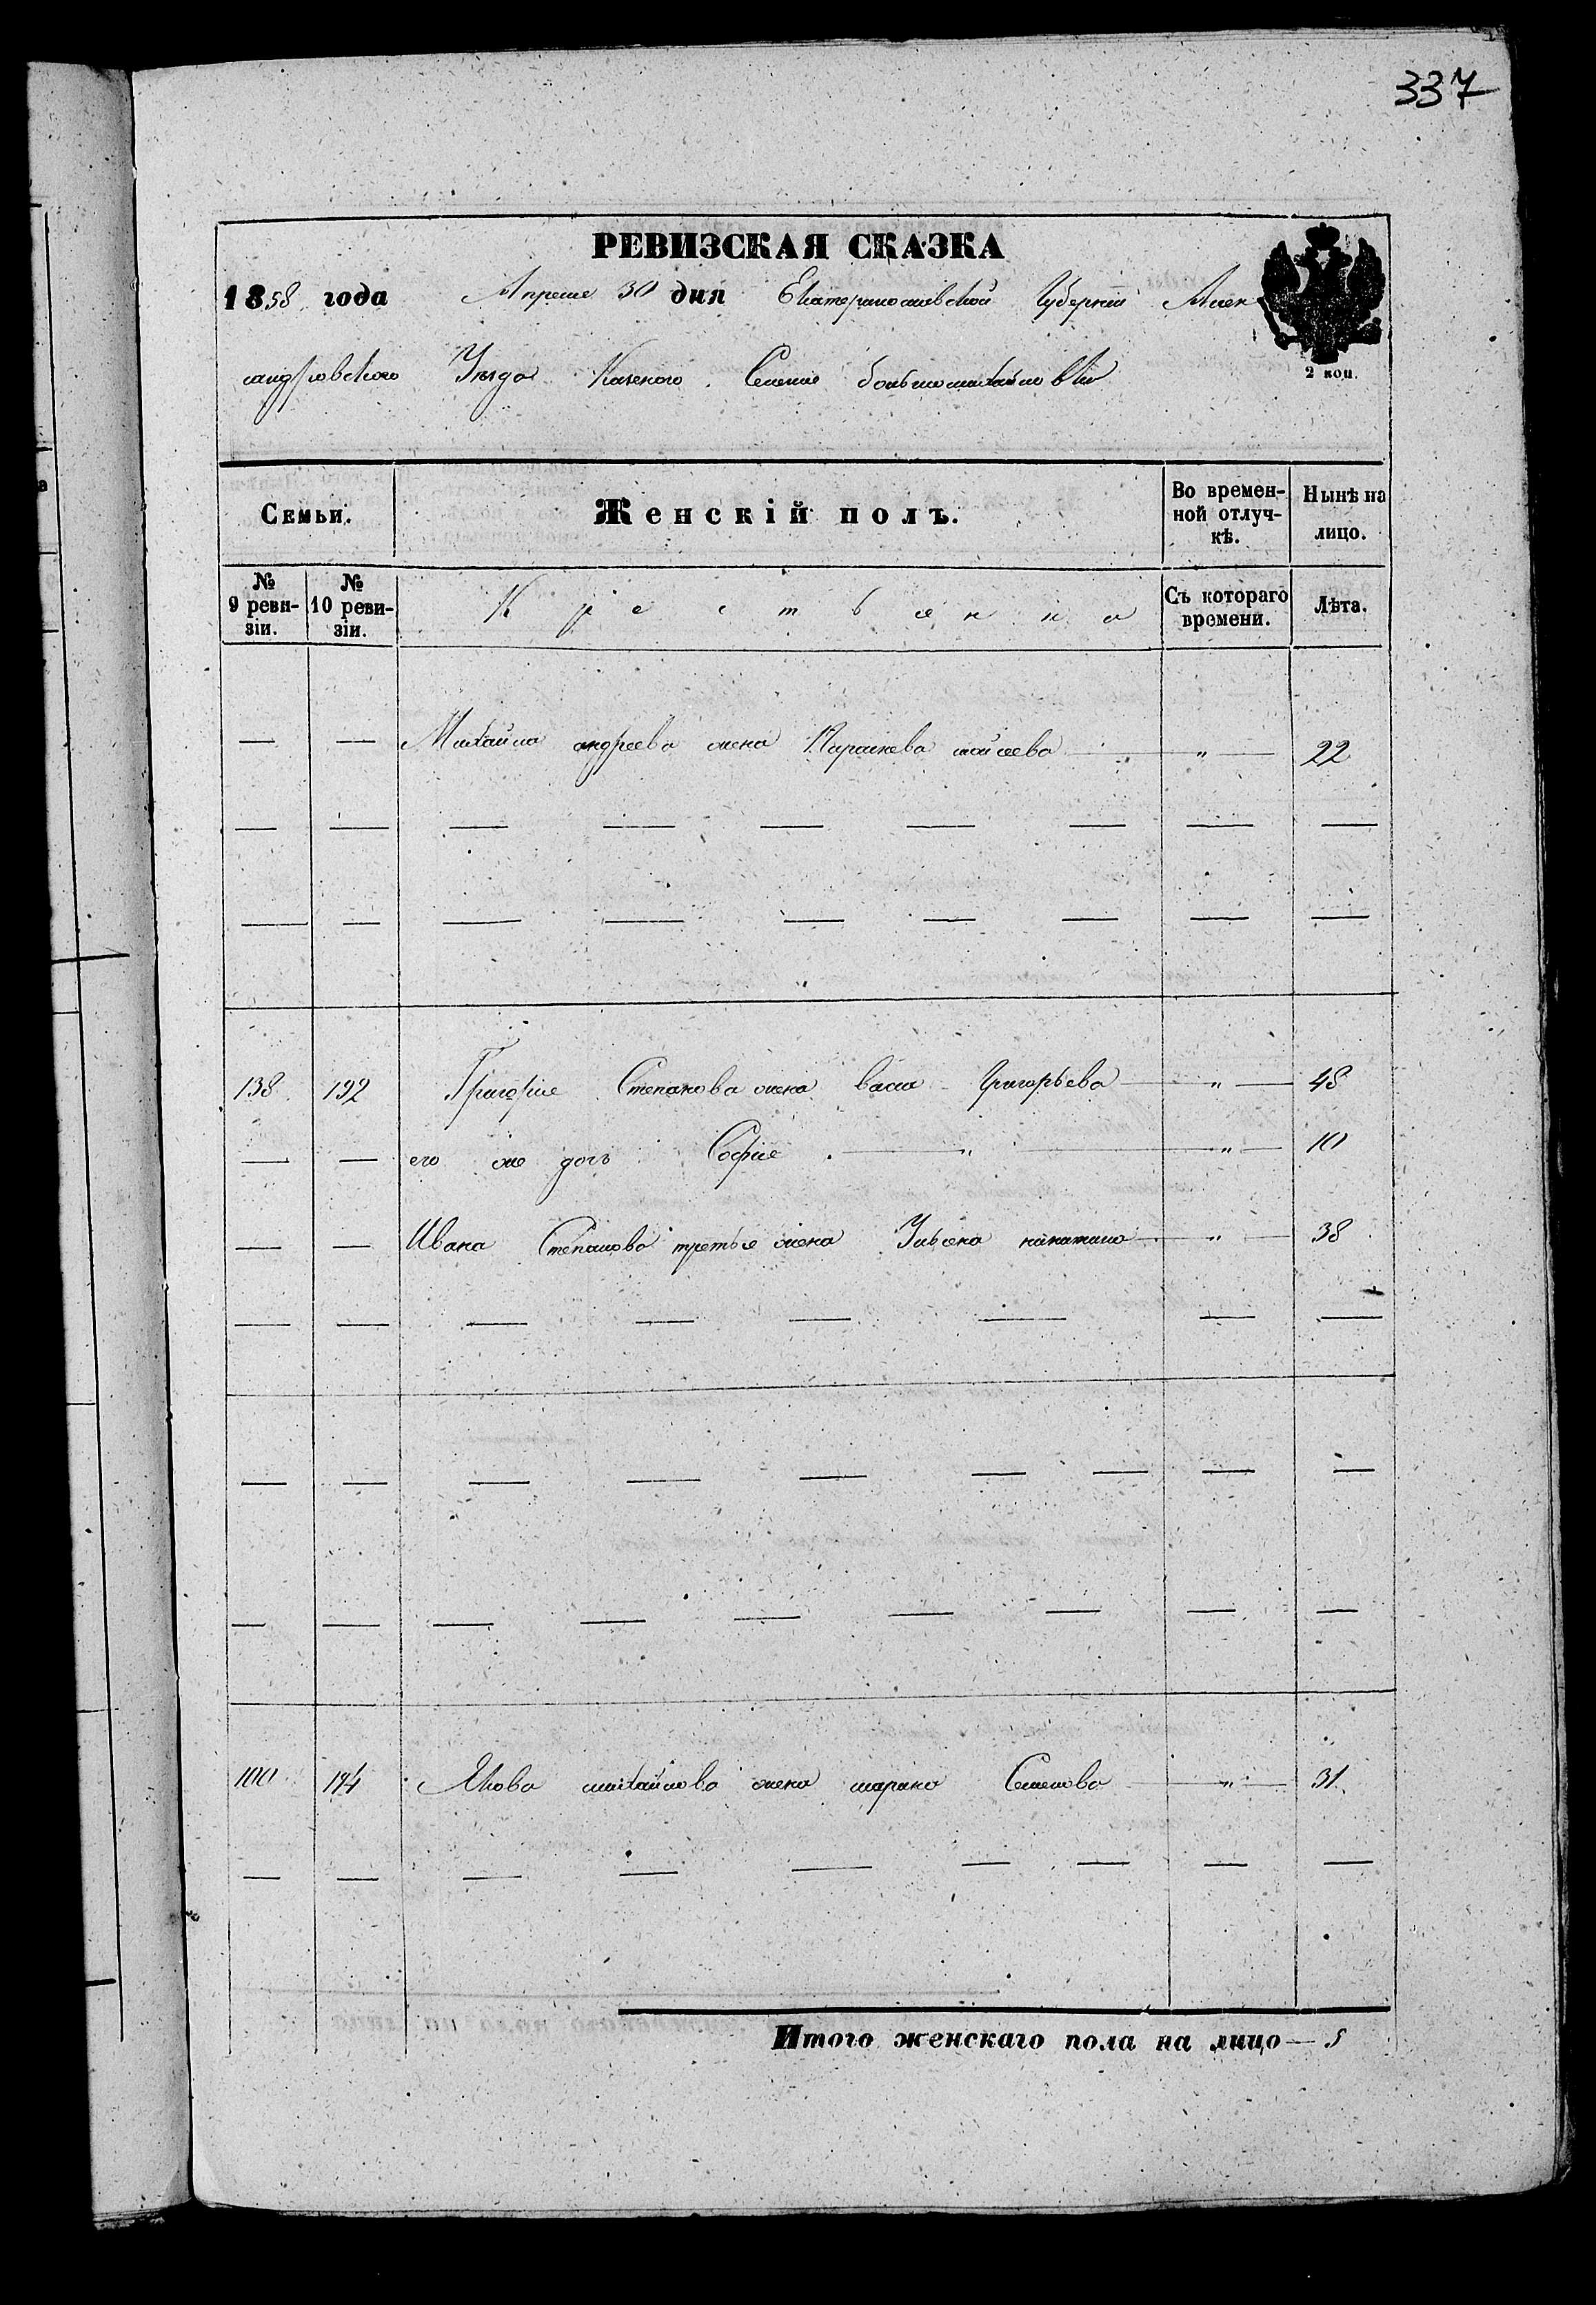 337
РЕВИЗСКАЯ СКАЗКА
1858 года Апреля 30 дня Екатеринославской Губернии Алек
сандровского Уезда Казеного Селения большомихайловки
2 коп.
Семьи. Женскій полъ. Во времен-ной отлуч-кѣ. Нынѣ на лицо.
№ 9 реви-зіи. № 10 реви-зіи. Крестьянка Съ котораго времени. Лѣта.
— — Михайла андреева жена Парасκева мойсеева — „ — 22
138 192 Григория Степанова жена васса Григорьева — „ — 48
— — его же дочь София — „ — „ — 10
— — Ивана Степанова третья жена Ульяна — „ — 38
100 194 Якова михайлова жена марина Семенова — „ — 31
Итого женскаго пола на лицо — 5